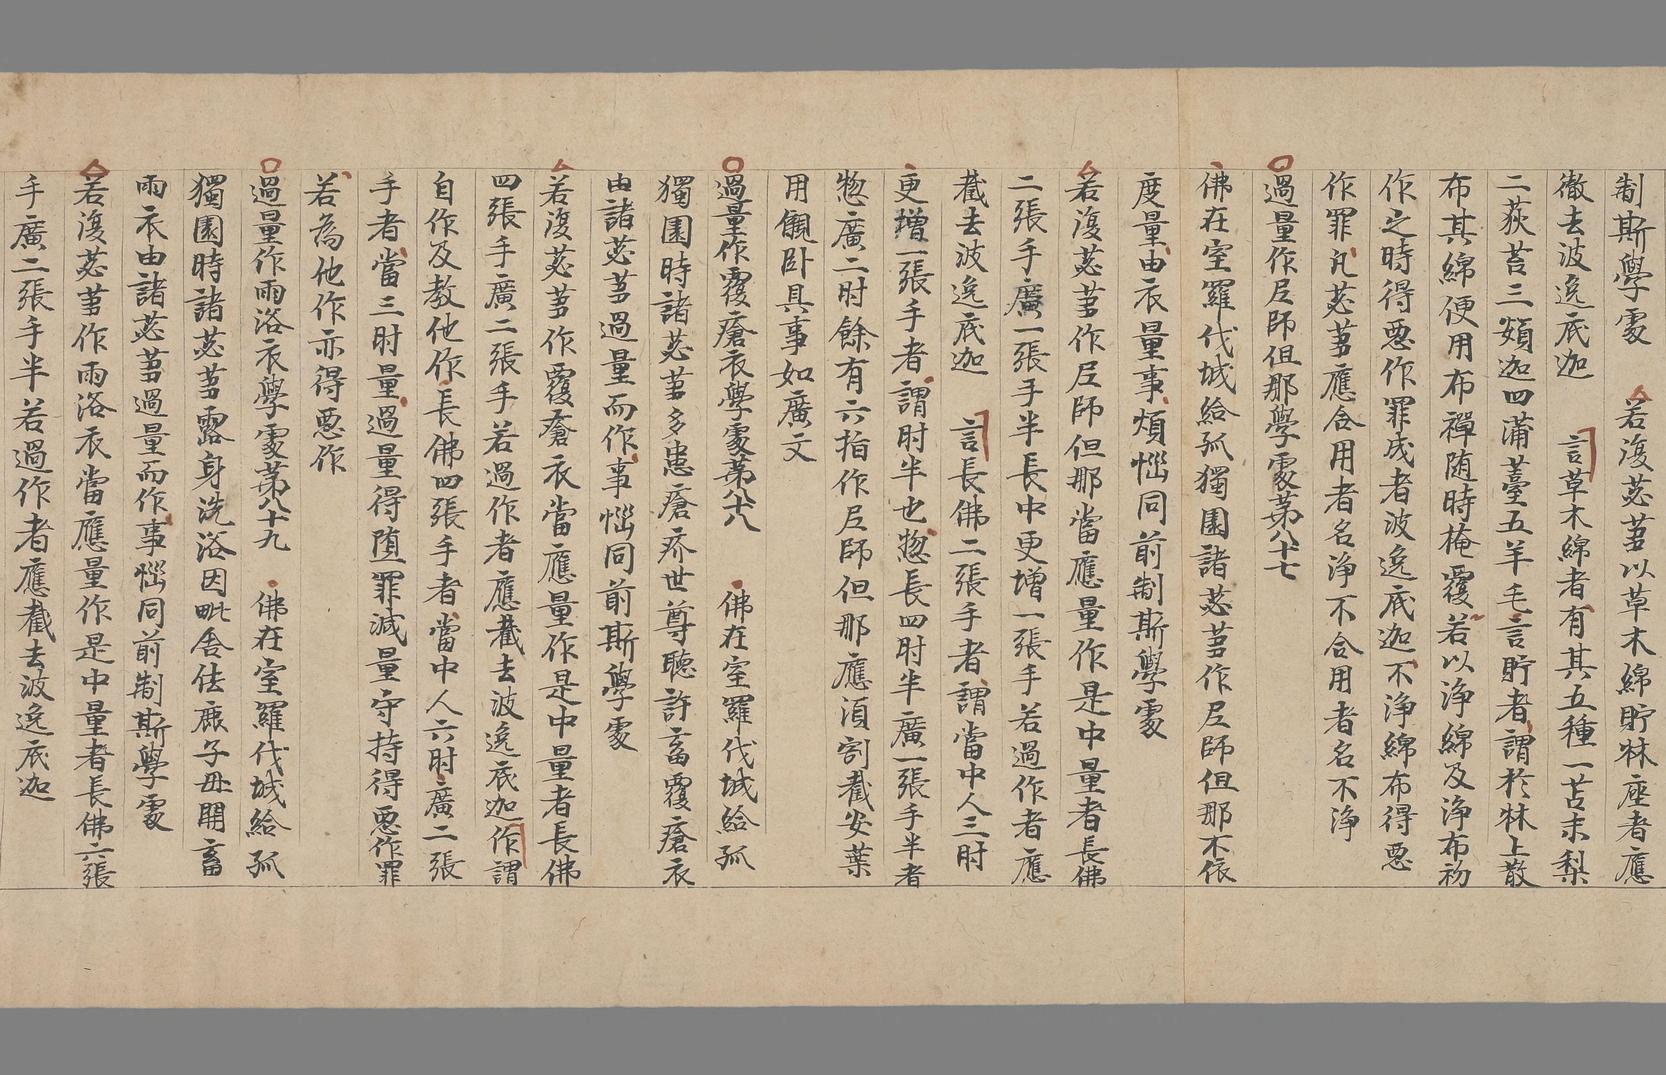 制斯學處　若復苾芻以草木綿貯牀座者應
撤去波逸底迦　言草木綿者有其五種一苫末梨
二荻苫三頞迦四蒲薹五羊毛言貯者謂於牀上散
布其綿便用布襌随時掩覆若以淨綿及淨布初
作之時得惡作罪成者波逸底迦不淨綿布得惡
作罪凡苾芻應合用者名淨不合用者名不淨
過量作尼師但那學處第八十七
佛在室羅伐城給孤獨園諸苾芻作尼師但那不依
度量由衣量事煩惱同前制斯學處
若復苾芻作尼師但那當應量作是中量者長佛
二張手廣一張手半長中更增一張手若過作者應
截去波逸底迦　言長佛二張手者謂當中人三肘
更增一張手者謂肘半也惣長四肘半廣一張手半者
惣廣二肘餘有六指作尼師但那應須割截安葉
用儭卧具事如廣文
過量作覆瘡衣學處第八十八　佛在室羅伐城給孤
獨園時諸苾芻多患瘡疥世尊聽許畜覆瘡衣
由諸苾芻過量而作事惱同前制斯學處
若復苾芻作覆瘡衣當應量作是中量者長佛
四張手廣二張手若過作者應截去波逸底迦作謂
自作及教他作長佛四張手者當中人六肘廣二張
手者當三肘量過量得墮罪減量守持得惡作罪
若為他作亦得惡作
過量作雨浴衣學處第八十九　佛在室羅伐城給孤
獨園時諸苾芻露身洗浴因毗舍佉鹿子母開畜
雨衣由諸苾芻過量而作事惱同前制斯學處
若復苾芻作雨浴衣當應量作是中量者長佛六張
手廣二張手半若過作者應截去波逸底迦